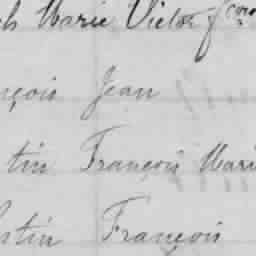 ph Marie Victor
nçois Jean
tin François Mari
stin François